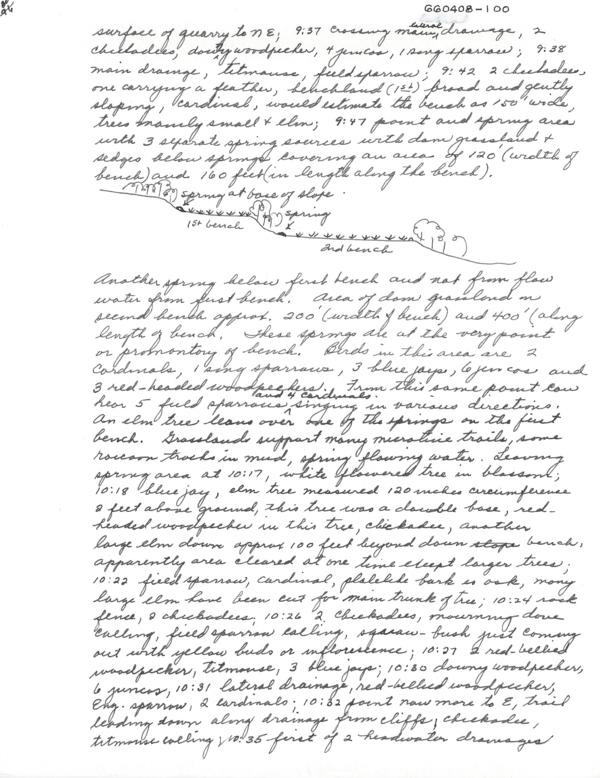 660408-100
surface of quarry to NE; 9:37 crossing lateral drainage, 2
chickadees, downy woodpecker, 4 juncos, 1 song sparrow; 9:38
main drainage, titmouse, field sparrow; 9:42 2 chickadees,
one carrying a feather, benchland (1st) broad and gently
sloping, cardinal, would estimate the bench as 150' wide,
trees mainly small & elm; 9:47 point and spring area
with 3 separate spring sources with dam grassland &
sedges below springs covering an area of 120' (width of
bench) and 160 feet (in length along the bench).
spring at base of slope.
spring
1st bench
2nd bench
Another spring below first bench and not from flow
water from first bench. Area of dam grassland on
second bench approx. 200' (width of bench) and 400' (along
length of bench. These springs are at the very point
or promontory of bench. Birds in this area are 2
cardinals, 1 song sparrows, 3 blue jays, 6 juncos and
3 red-headed woodpeckers. From this same point can
hear 5 field sparrows and 4 cardinals singing in various directions.
An elm tree leans over one of the springs on the first
bench. Grasslands support many microtine trails, some
raccoon tracks in mud, spring flowing water. Leaving
spring area at 10:17, white flowered tree in blossom;
10:18 blue jay, elm tree measured 120 inches circumference
2 feet above ground, this tree was a double base, red-
headed woodpecker in this tree, chickadee, another
large elm down approx 100 feet beyond down slope bench,
apparently area cleared at one time except larger trees;
10:22 field sparrow, cardinal, platelike bark is oak, many
large elm have been cut for main trunk of tree; 10:24 rock
fence, 2 chickadees; 10:26 2 chickadees, mourning dove
calling, field sparrow calling, squaw-bush just coming
out with yellow buds or inflorescence; 10:27 2 red-bellied
woodpecker, titmouse, 3 blue jays; 10:30 downy woodpecker,
6 juncos, 10:31 lateral drainage, red-bellied woodpecker,
Eng. sparrow, 2 cardinals; 10:32 point now more to E, trail
leading down along drainage from cliffs, chickadee,
titmouse calling; 10:35 first of 2 headwater drainages